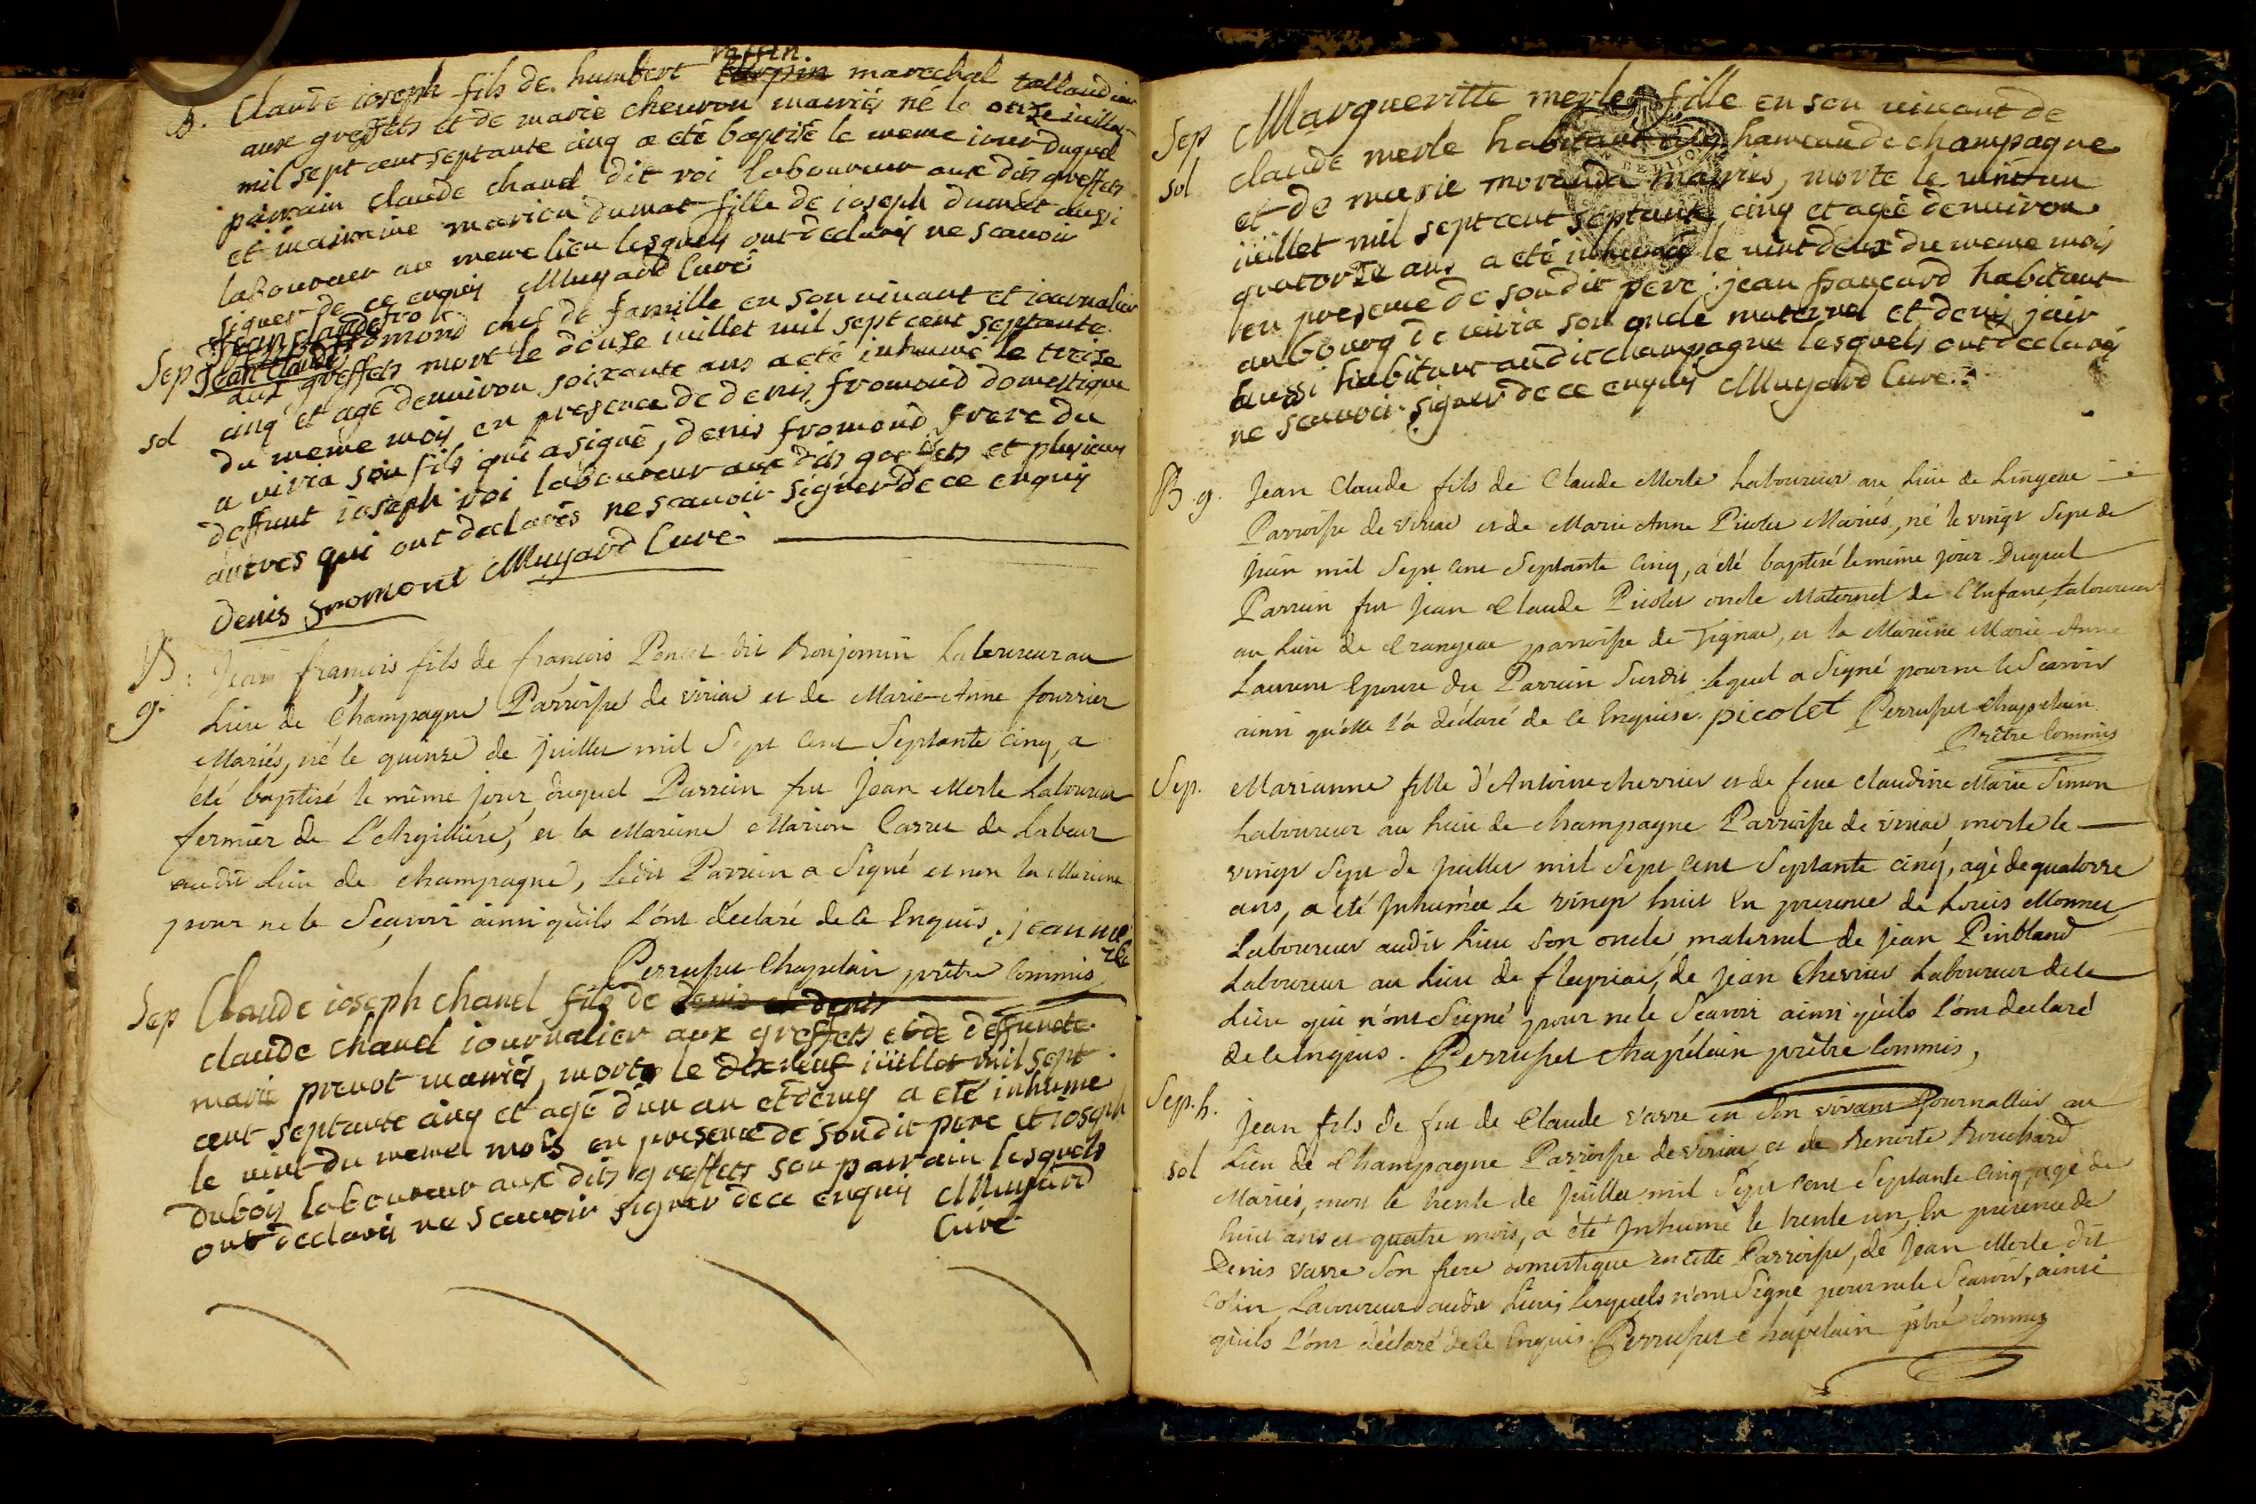 raffin.
B. Claude ioseph fils de humbert turpin marechal tallandier
aux greffets et de marie cheuron mauriés né le onze iuillet
mil sept cent septante cinq a eté baptisé le meme iour duquel
parrain claude chanel dit roi laboureur aux dits greffets
et marraine marion dumat fille de ioseph dumat aussi
laboureur au meme lieu lesquels ont declarés ne scauoir
signer de ce enquis Muyard Curé
Jean claude fro
Sep fromond chef de famille en son uiuant et iournalier
Jean claude
aux greffets mort le douze iuillet mil sept cent septante
cinq et agé denuiron soixante ans a eté inhumé le treize
sol du meme mois en presence de denis fromond domestique
a viria son fils qui a signé, denis fromond frere du
deffunt ioseph roi laboureur aux dits greffets et plusieurs
autres qui ont declarés ne scauoir signer de ce enquis
Denis fromont Muyard Curé
B. Jean françois fils de françois Poncet dit Bonjomin Laboureur au
g. Lieu de Champagne Parroisse de viriac et de Marie-Anne fourrier
Mariés, né le quinze de Juillet mil Sept Cent Septante cinq, a
été baptisé le même jour duquel Parrain fut Jean Merle Laboureur
fermier de L'Argilliére, et la Maraine Marion Carret de Labeur
audit Lieu de champagne, Ledit Parrain a Signé et non la Maraine
pour ne le Sçavoir ainsi qu'ils L'ont déclaré de ce Enquis. jean me
rle
Perruset Chapelain prêtre Commis
Sep Claude ioseph chanel fils de denis et denis
claude chanel iournalier aux greffets et de deffuncte
marie preuot mauriés, morte le dixneuf iuillet mil sept
cent septante cinq et agé d'un an et demy a eté inhumé
le uint du meme mois en presence de son dit pere et ioseph
dubois laboureur aux dits greffets son parrain lesquels
ont declarés ne scauoir signer de ce enquis Muyard
Curé
Sep Margueritte merle fille en son uiuant de
sol claude merle habitant au hameau de champagne
et de marie moranda mauriés, morte le uint un
iuillet mil sept cent septante cinq et agé denuiron
quatorze ans a eté inhumée le uint deux du meme mois
en presence de son dit pere jean francard habitant
au bourg de uiria son oncle maternel et denis jair
aussi habitant au dit champagne lesquels ont declarés
ne scauoir signer de ce enquis Muyard Curé
B. g. Jean Claude fils de Claude Merle Laboureur au Lieu de Lingeat
Parroisse de viriac et de Marie Anne Picolet Mariés, né le vingt Sept de
Juin mil Sept Cent Septante Cinq, a été baptisé le même jour Duquel
Parrain fut Jean Claude Picolet oncle Maternel de L'Enfant, Laboureur
au Lieu de Crangeat parroisse de Tignat, et la Maraine Marie Anne
Laurent Epouse du Parrain Susdit. Lequel a Signé pour ne le Scavoir
ainsi qu'elle l'a déclaré de ce Enquise. picolet Perruset Chapelain
Prêtre Commis
Sep. Marianne fille d'Antoine chevrier et de feue claudine Marie Simon
Laboureur au Lieu de champagne Parroisse de viriac morte le
vingt Sept de Juillet mil Sept Cent Septante Cinq, agé de quatorze
ans, a été Inhumée Le vingt huit En presence de Louis Monnet
Laboureur audit Lieu son oncle maternel de jean Pinbland
Laboureur au Lieu de fleyriac, de Jean Chevrier Laboureur de ce
Lieu qui n'ont Signé pour ne le Scavoir ainsi qu'ils L'ont declaré
de ce Enquis. Perruset Chapélain prêtre Commis,
Sep. h. Jean fils de feu de Claude varre en Son vivant Journallier au
sol Lieu de Champagne Parroisse de viriac et de Benoite Bouchard
Mariés, mort le trente de Juillet mil Sept Cent Septante Cinq, agé de
huit ans et quatre mois, a été Inhumé le trente un, En présence de
Denis varre Son frere domestique en cette Parroisse, de Jean Merle dit
Colin, Laboureur audit Lieu, Lesquels n'ont Signé pour ne le Scavoir, ainsi
qu'ils L'ont déclaré de ce Enquis. Perruset Chapelain ptre commis